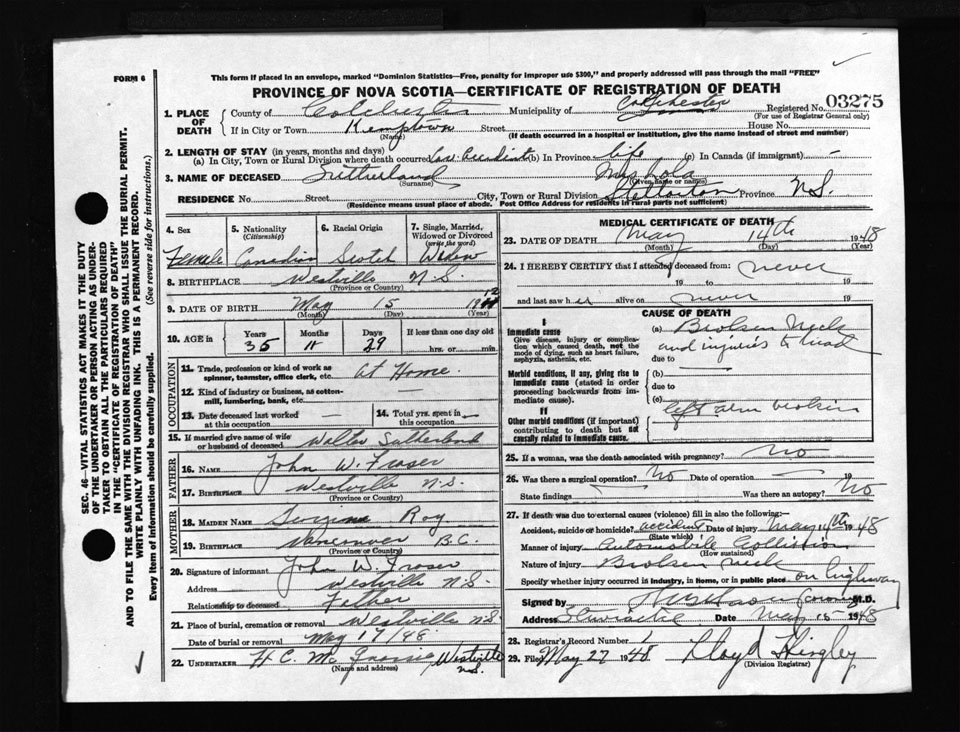 This form if placed in an envelope, marked "Dominion Statistics—Free, penalty for improper use $300," and properly addressed will pass through the mail "FREE"
FORM 6
PROVINCE OF NOVA SCOTIA—CERTIFICATE OF REGISTRATION OF DEATH
03275
1. PLACE OF DEATH County of Colchester Municipality of Colchester Registered No.
(For use of Registrar General only)
If in City or Town Kemptown Street House No.
(Name) (If death occurred in a hospital or institution, give the name instead of street and number)
2. LENGTH OF STAY (in years, months and days)
(a) In City, Town or Rural Division where death occurred Car Accident (b) In Province life (c) In Canada (if immigrant) —
3. NAME OF DECEASED Sutherland Mrs Lola
(Surname) (Given name or names)
RESIDENCE No. Street City, Town or Rural Division Stellarton Province N.S.
(Residence means usual place of abode. Post Office Address for residents in rural parts not sufficient)
4. Sex Female
5. Nationality (Citizenship) Canadian
6. Racial Origin Scotch
7. Single, Married, Widowed or Divorced (write the word) Widow
8. BIRTHPLACE Westville N.S.
(Province or Country)
9. DATE OF BIRTH May 15 1912
(Month) (Day) (Year)
10. AGE in Years 35 Months 11 Days 29 If less than one day old hrs. or min.
OCCUPATION
11. Trade, profession or kind of work as spinner, teamster, office clerk, etc. at Home
12. Kind of industry or business, as cotton-mill, lumbering, bank, etc.
13. Date deceased last worked at this occupation —
14. Total yrs. spent in this occupation —
15. If married give name of wife or husband of deceased Walter Sutherland
FATHER
16. Name John W. Fraser
17. Birthplace Westville N.S.
(Province or Country)
MOTHER
18. MAIDEN NAME Roy
19. BIRTHPLACE Vancouver B.C.
(Province or Country)
20. Signature of informant John W. Fraser
Address Westville N.S.
Relationship to deceased Father
21. Place of burial, cremation or removal Westville N.S.
Date of burial or removal May 17/48
22. UNDERTAKER H C. Westville N.S.
(Name and address)
MEDICAL CERTIFICATE OF DEATH
23. DATE OF DEATH May 14th 1948
(Month) (Day) (Year)
24. I HEREBY CERTIFY that I attended deceased from: never
19 to 19
and last saw her alive on never 19
CAUSE OF DEATH
I
Immediate cause
Give disease, injury or complication which caused death, not the mode of dying, such as heart failure, asphyxia, asthenia, etc.
(a) Broken Neck and injuries to head
due to
Morbid conditions, if any, giving rise to immediate cause (stated in order proceeding backwards from immediate cause).
(b)
due to
(c)
II
Other morbid conditions (if important) contributing to death but not causally related to immediate cause.
left arm broken
25. If a woman, was the death associated with pregnancy? no
26. Was there a surgical operation? No Date of operation 19
State findings Was there an autopsy? No
27. If death was due to external causes (violence) fill in also the following:—
Accident, suicide or homicide? accident Date of injury May 14th 1948
(State which)
Manner of injury Automobile Collision
(How sustained)
Nature of injury Broken neck
Specify whether injury occurred in industry, in home, or in public place on highway
Signed by M.D.
Address Date May 15 1948
28. Registrar's Record Number 1
29. Filed May 27 1948 Lloyd Hingley
(Division Registrar)
SEC. 46—VITAL STATISTICS ACT MAKES IT THE DUTY
OF THE UNDERTAKER OR PERSON ACTING AS UNDER-
TAKER TO OBTAIN ALL THE PARTICULARS REQUIRED
IN THE "CERTIFICATE OF REGISTRATION OF DEATH"
AND TO FILE THE SAME WITH THE DIVISION REGISTRAR WHO SHALL ISSUE THE BURIAL PERMIT.
WRITE PLAINLY WITH UNFADING INK. THIS IS A PERMANENT RECORD.
Every item of information should be carefully supplied. (See reverse side for instructions.)